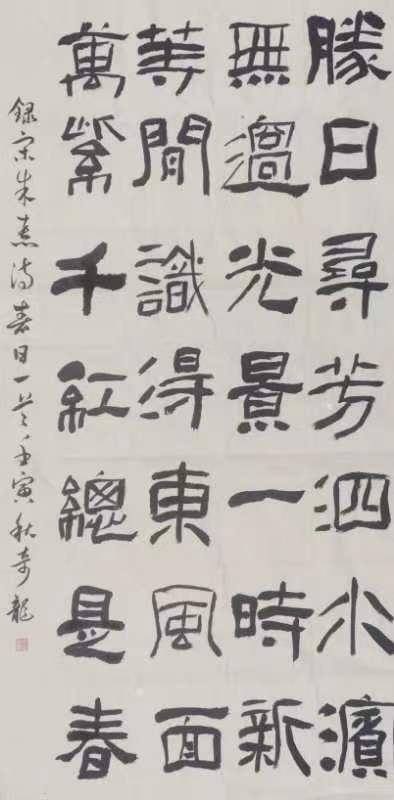 勝日尋芳泗水濱
無邊光景一時新
等閒識得東風面
萬紫千紅總是春
錄宋朱熹詩春日一首壬寅秋奇龍